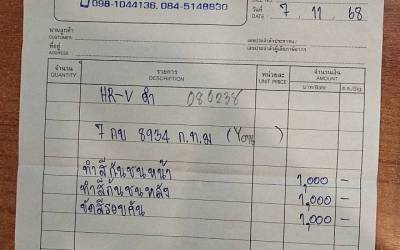 098-1044136, 084-5148830
วันที่
DATE 7 11 68
นามลูกค้า
CUSTOMER
เลขประจำตัวประชาชน
ที่อยู่
ADDRESS
เลขประจำตัวผู้เสียภาษีอากร
จำนวน รายการ หน่วยละ จำนวนเงิน
QUANTITY DESCRIPTION UNIT PRICE AMOUNT
บาท/Baht ส.ต./Stg.
HR-V ดำ 080238
7 กบ 8934 ก.ท.ม
ทำสีกันชนหน้า 1,000 -
ทำสีกันชนหลัง 1,000 -
ขัดสีรอบคัน 1,000 -